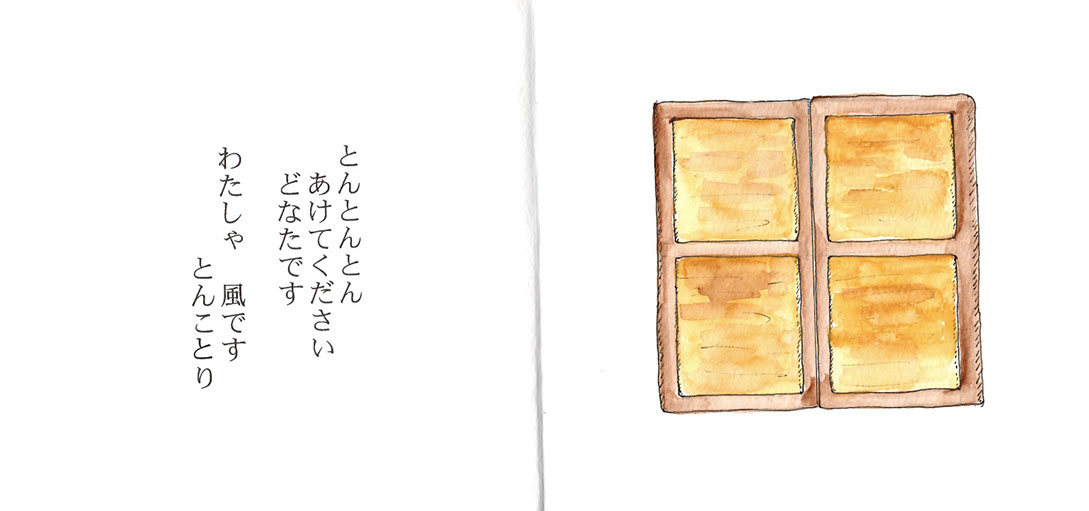 とんとんとん
あけてください
どなたです
わたしゃ　風です
とんことり